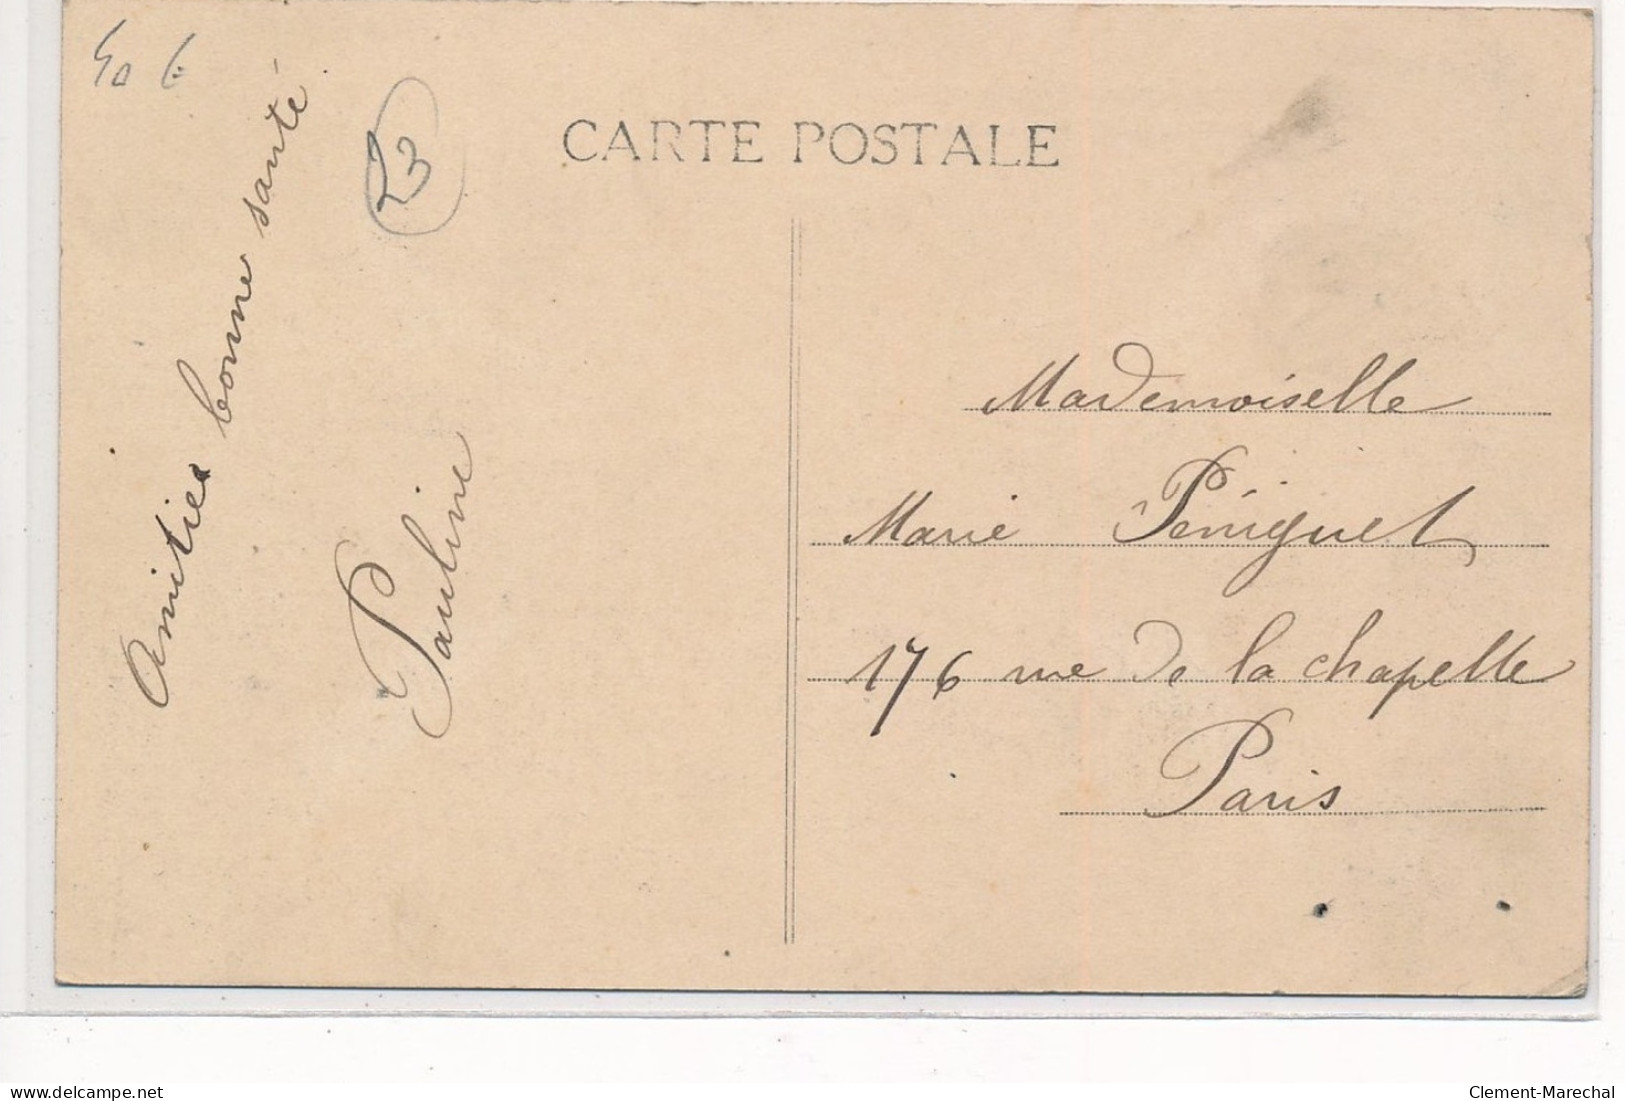 CARTE POSTALE
23
Amitiés bonne santé
Pauline
Mademoiselle
Marie Péniguet
176 rue de la chapelle
Paris
delcampe.net
Clement-Marechal